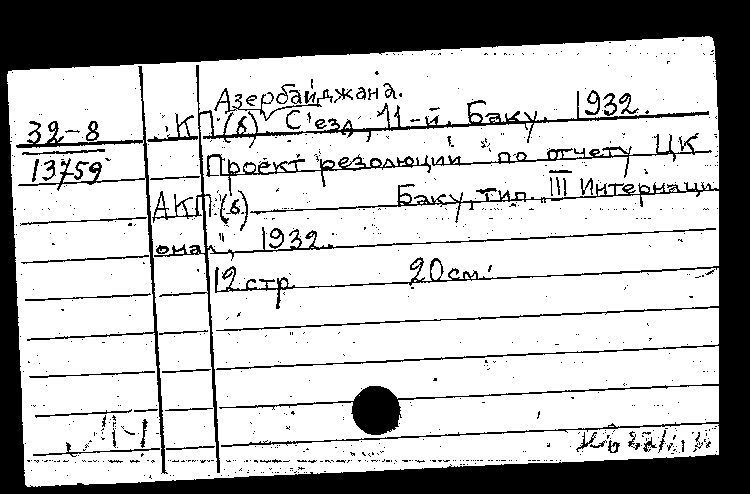 Азербайджана.
32-8 КП(б) С'езд, 11-й. Баку. 1932.
13759 Проект резолюций по отчету ЦК
АКП(б) Баку, тип. "III Интернаци
онал", 1932.
12 стр. 20 см.
М-1